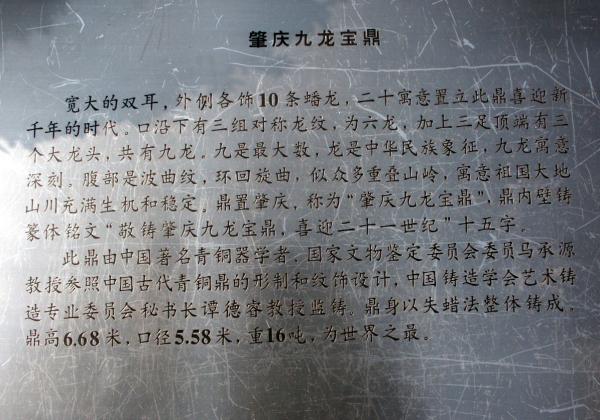 肇庆九龙宝鼎
宽大的双耳，外侧各饰10条蟠龙，二十寓意置立此鼎喜迎新
千年的时代。口沿下有三组对称龙纹，为六龙，加上三足顶端有三
个大龙头，共有九龙。九是最大数，龙是中华民族象征，九龙寓意
深刻。腹部是波曲纹，环回旋曲，似众多重叠山岭，寓意祖国大地
山川充满生机和稳定。鼎置肇庆，称为“肇庆九龙宝鼎”，鼎内壁铸
篆体铭文“敬铸肇庆九龙宝鼎，喜迎二十一世纪”十五字。
此鼎由中国著名青铜器学者、国家文物鉴定委员会委员马承源
教授参照中国古代青铜鼎的形制和纹饰设计，中国铸造学会艺术铸
造专业委员会秘书长谭德睿教授监铸。鼎身以失蜡法整体铸成。
鼎高6.68米，口径5.58米，重16吨，为世界之最。